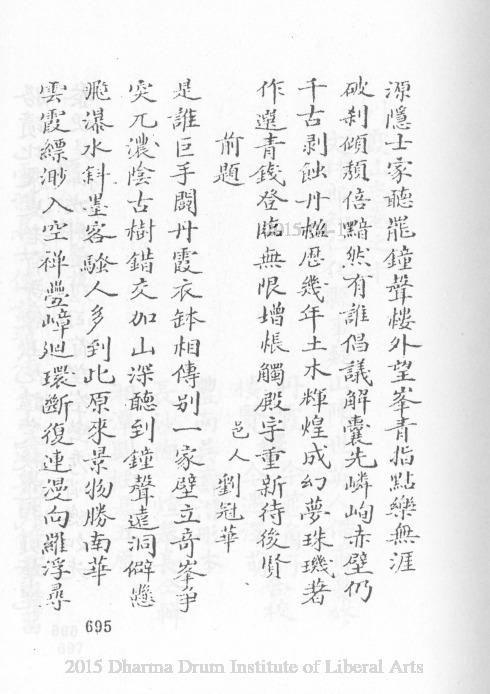 源隱士家聽罷鐘聲樓外望峯青指點樂無涯
破刹傾頹倍黯然有誰倡議解囊先嶙峋赤壁仍
千古剥蝕丹楹歷幾年土木輝煌成幻夢珠璣著
作選青錢登臨無限增悵觸殿宇重新待後賢
前題
邑人劉冠華
是誰巨手闢丹霞衣缽相傳別一家壁立奇峯爭
突兀濃陰古樹錯交加山深聽到鐘聲遠洞僻
飛瀑水斜墨客騷人多到此原來景物勝南華
雲霞縹渺入空禅疊嶂廻環斷復連漫向羅浮尋
695
2015 Dharma Drum Institute of Liberal Arts